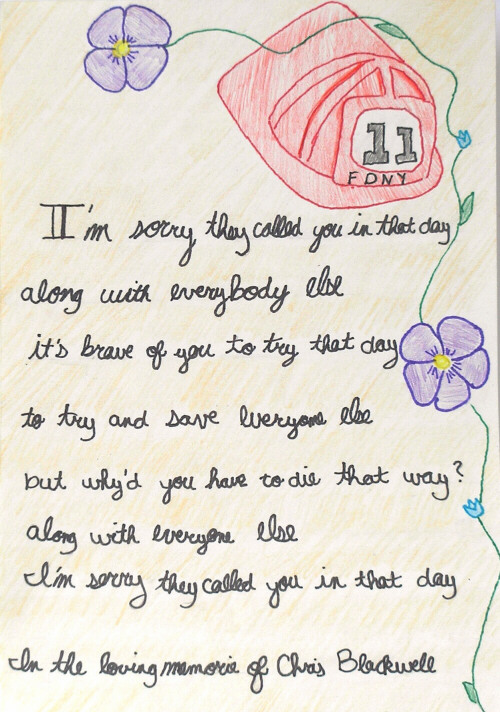 11
FDNY
I'm sorry they called you in that day
along with everybody else
it's brave of you to try that day
to try and save everyone else
but why'd you have to die that way?
along with everyone else
I'm sorry they called you in that day
In the loving memorie of Chris Blackwell